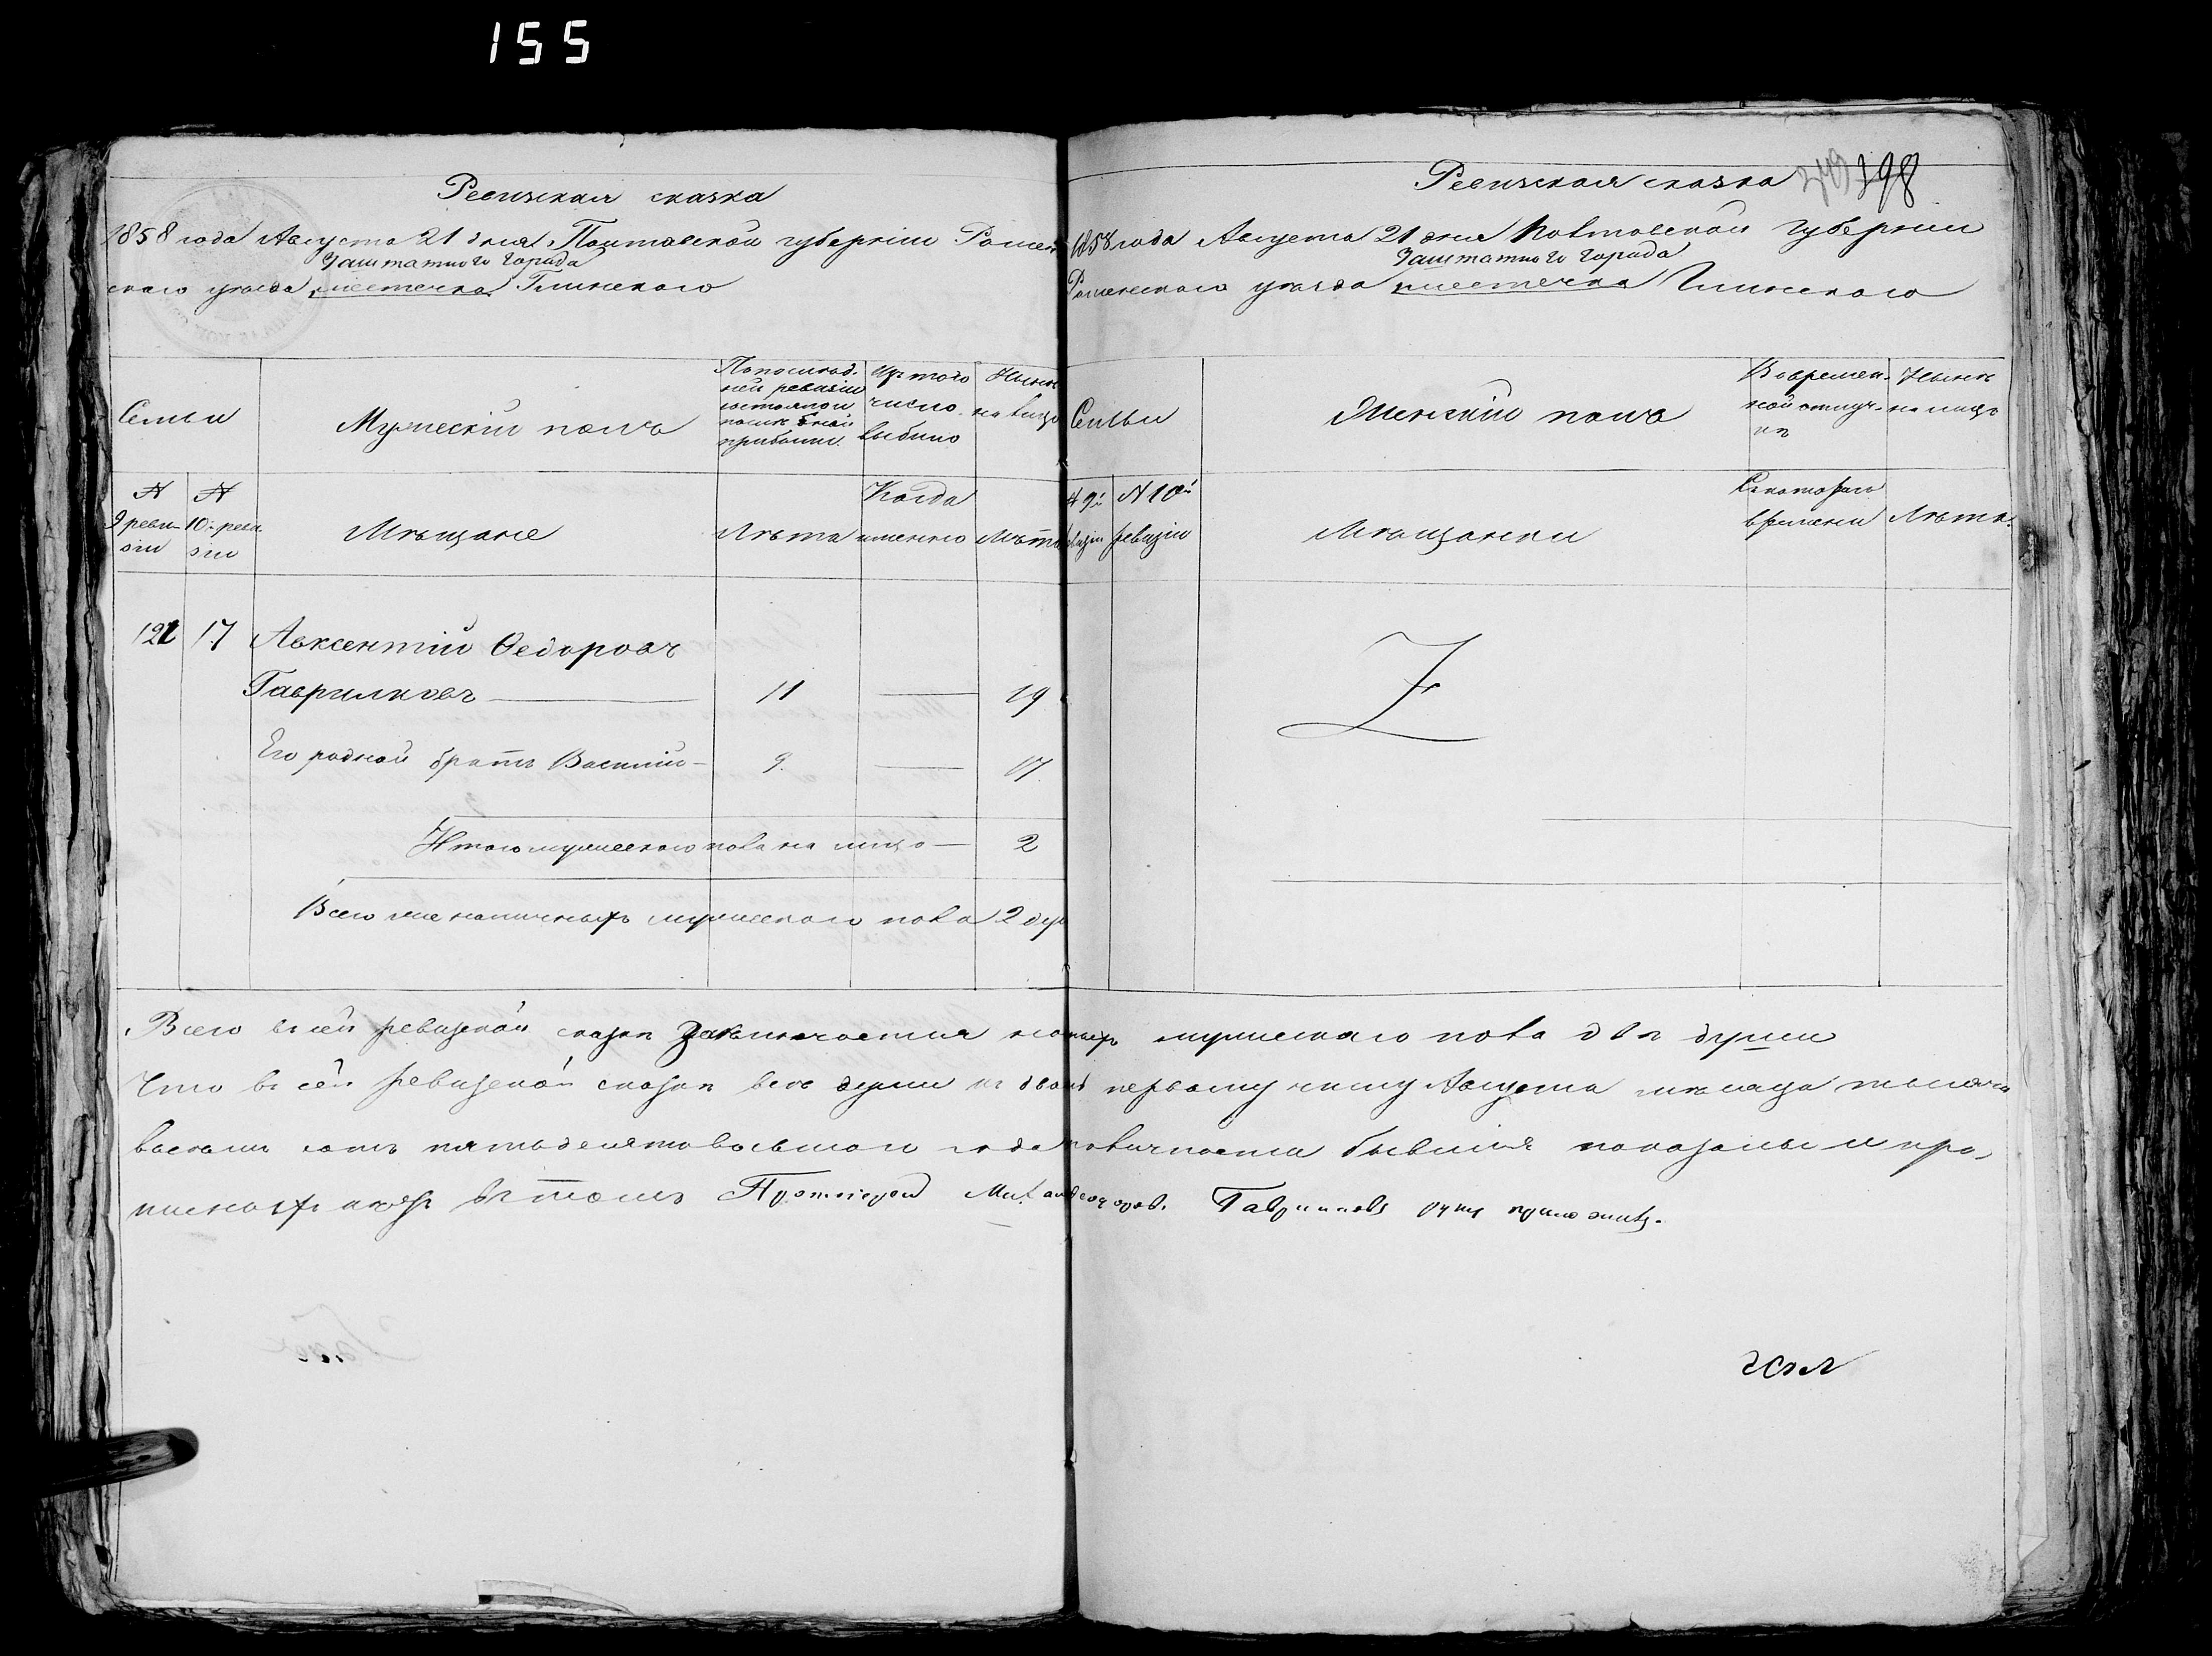 155
Ревизская сказка
1858 года Августа 21 дня Полтавской губернии Ромен
Заштатного города
скаго уезда местечка Глинского
Семьи
Мужеский полъ
По послед-
ней ревизии
состояло и
после оной
прибыло
Изъ того
число
выбыло
Ныне
на лицо
№
9 реви-
зии
№
10й реви
зии
Мещане
Лета
Когда
именно
Лета
121 17 Авксентий Ѳедоровъ
Гавриловъ 11 — 19
Его родной братъ Василий 9. — 17.
Итого мужескаго пола на лицо — 2
Всего же наличныхъ мужескаго пола 2 душ
Ревизская сказка 398
1858 года Августа 21 дня Полтавской Губернии
Заштатного города
Роменскаго уезда местечка Глинскаго
Семьи
Женский полъ
Во времен-
ной отлуч-
ке
Ныне
на лицо
№ 9й
ревизии
№ 10й
ревизии
Мещанки
Съ котораго
времени
Лета.
Z
Всего въ сей ревизской сказке заключается мужескаго пола две души
Что въ сей ревизской сказке все души къ двад первому числу Августа месяца тысяча
восемь сотъ пятьдесятъ восьмого года бывшия показаны и про
въ томъ Протоиерей Гавриловъ руку приложилъ.